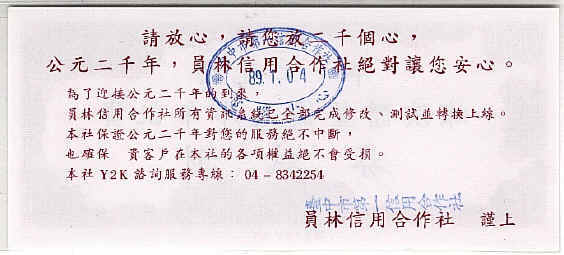 請放心，請您放二千個心，
公元二千年，員林信用合作社絕對讓您安心。
為了迎接公元二千年的到來，
員林信用合作社所有資訊系統已全部完成修改、測試並轉換上線。
本社保證公元二千年對您的服務絕不中斷，
也確保 貴客戶在本社的各項權益絕不會受損。
本社 Y2K 諮詢服務專線： 04 - 8342254
臺中市第一信用合作社
員林信用合作社 謹上
89.1.04